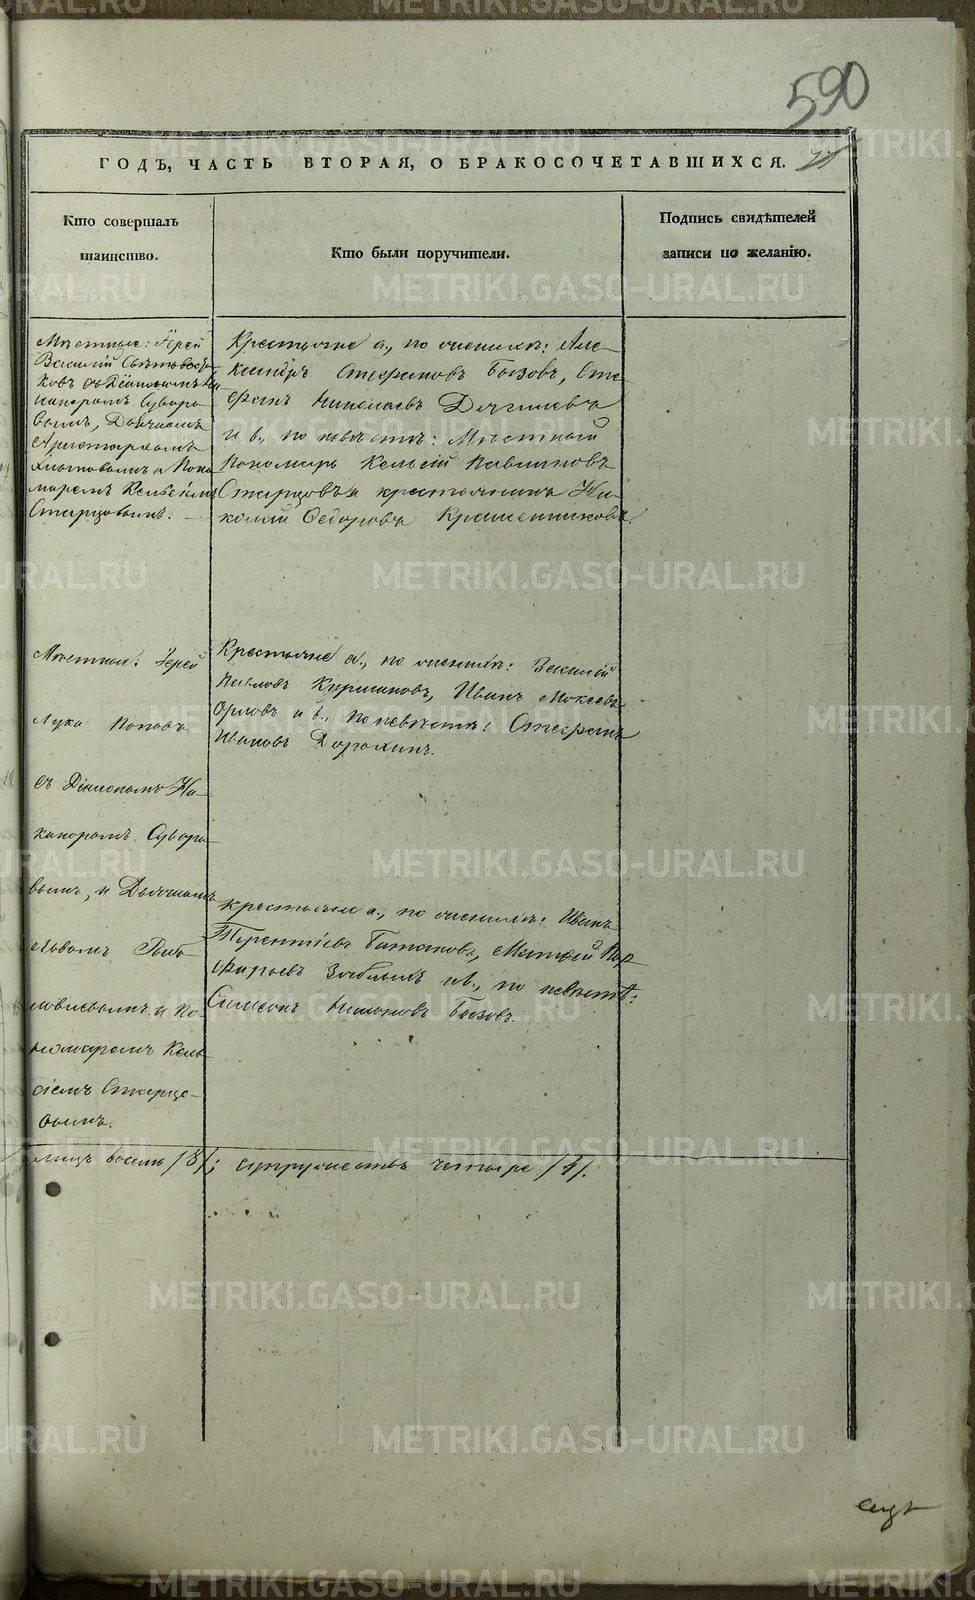 590
ГОДЪ, ЧАСТЬ ВТОРАЯ, О БРАКОСОЧЕТАВШИХСЯ.
Кто совершалъ
таинство.
Кто были поручители.
Подпись свидѣтелей
записи по желанію.
Мѣстные: Іерей
Василій
ковъ съ Діакономъ Ни
каноромъ Суворо
вымъ, Дьячкомъ
Аристархомъ
и Поно
маремъ Кельсіемъ
Старцовымъ.
Крестьяне а., по женихѣ: Але
ксандръ Стефановъ Бызовъ, Сте
фанъ Николаевъ Дягилевъ
и б., по невѣстѣ: Мѣстный
Пономарь Кельсій Павлиновъ
Старцовъ и крестьянинъ Ни
колай Ѳедоровъ Крашенинниковъ.
Мѣстные: Іерей
Лука Поповъ
съ Діакономъ Ни
каноромъ Суворо
вымъ, и Дьячкомъ
и По
номаремъ Кель
сіемъ Старцо
вымъ.
Крестьяне а., по женихѣ: Василій
Павловъ Ивинъ Мокеевъ
Орловъ и б., по невѣстѣ: Стефанъ
Ивановъ Дорохинъ.
Крестьяне а., по женихѣ: Иванъ
Терентіевъ Матфей Пор
фирьевъ и б., по невѣстѣ:
Симеонъ Бызовъ.
лицъ восемь /8/; супружествъ четыре /4/.
METRIKI.GASO-URAL.RU